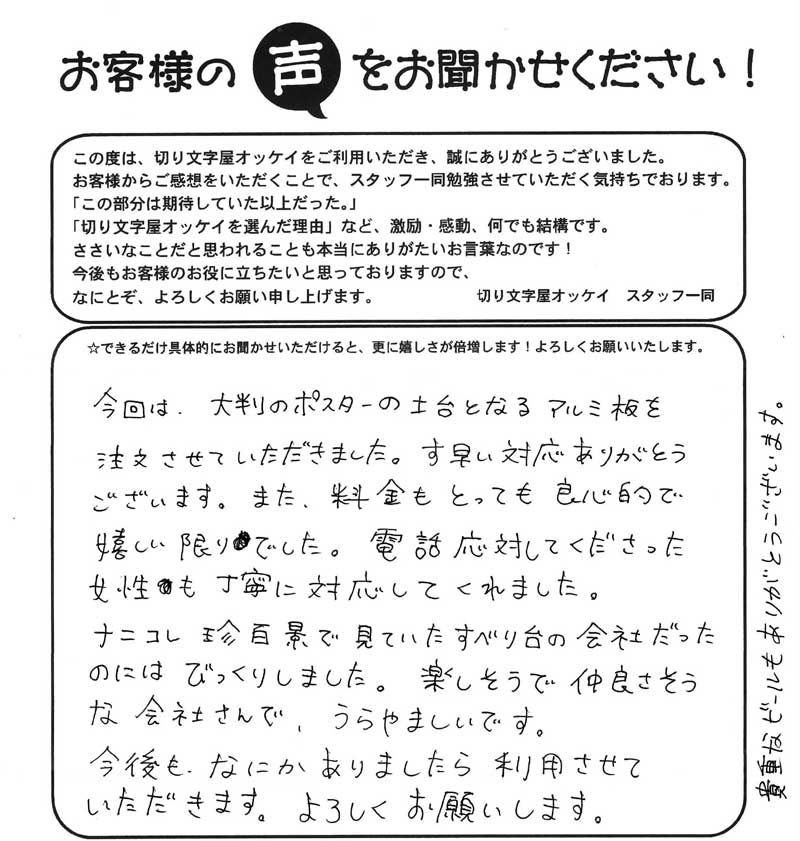 お客様の声をお聞かせください！
この度は、切り文字屋オッケイをご利用いただき、誠にありがとうございました。
お客様からご感想をいただくことで、スタッフ一同勉強させていただく気持ちでおります。
「この部分は期待していた以上だった。」
「切り文字屋オッケイを選んだ理由」など、激励・感動、何でも結構です。
ささいなことだと思われることも本当にありがたいお言葉なのです！
今後もお客様のお役に立ちたいと思っておりますので、
なにとぞ、よろしくお願い申し上げます。　切り文字屋オッケイ　スタッフ一同
☆できるだけ具体的にお聞かせいただけると、更に嬉しさが倍増します！よろしくお願いいたします。
今回は、大判のポスターの土台となるアルミ板を
注文させていただきました。す早い対応ありがとう
ございます。また、料金もとっても良心的で
嬉しい限りでした。電話応対してくださった
女性も丁寧に対応してくれました。
ナニコレ珍百景で見ていたすべり台の会社だった
のにはびっくりしました。楽しそうで仲良さそう
な会社さんで、うらやましいです。
今後も、なにかありましたら利用させて
いただきます。よろしくお願いします。
貴重なビールもありがとうございます。